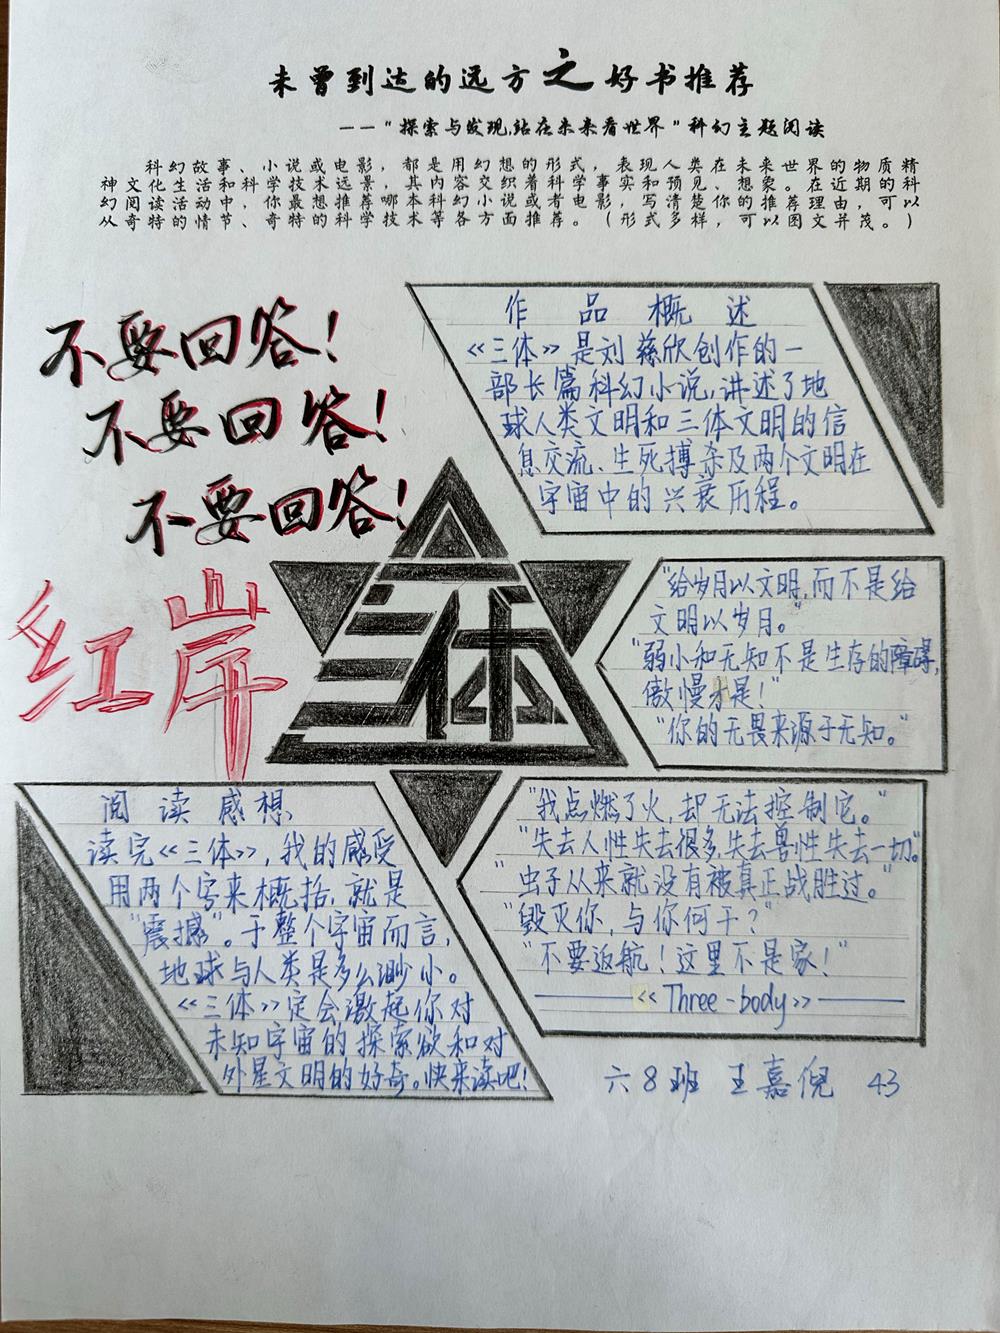 未曾到达的远方之好书推荐
——“探索与发现,站在未来看世界”科幻主题阅读
科幻故事、小说或电影，都是用幻想的形式，表现人类在未来世界的物质精
神文化生活和科学技术远景，其内容交织着科学事实和预见、想象。在近期的科
幻阅读活动中，你最想推荐哪本科幻小说或者电影，写清楚你的推荐理由，可以
从奇特的情节、奇特的科学技术等各方面推荐。（形式多样，可以图文并茂。）
不要回答！
不要回答！
不要回答！
红岸
三体
作品概述
《三体》是刘慈欣创作的一
部长篇科幻小说,讲述了地
球人类文明和三体文明的信
息交流、生死搏杀及两个文明在
宇宙中的兴衰历程。
“给岁月以文明,而不是给
文明以岁月。”
“弱小和无知不是生存的障碍,
傲慢才是！”
“你的无畏来源于无知。”
“我点燃了火,却无法控制它。”
“失去人性失去很多,失去兽性失去一切。”
“虫子从来就没有被真正战胜过。”
“毁灭你，与你何干？”
“不要返航！这里不是家！”
——《Three-body》——
阅读感想
读完《三体》,我的感受
用两个字来概括,就是
“震撼”。于整个宇宙而言,
地球与人类是多么渺小。
《三体》定会激起你对
未知宇宙的探索欲和对
外星文明的好奇。快来读吧！
六8班 王嘉倪 43